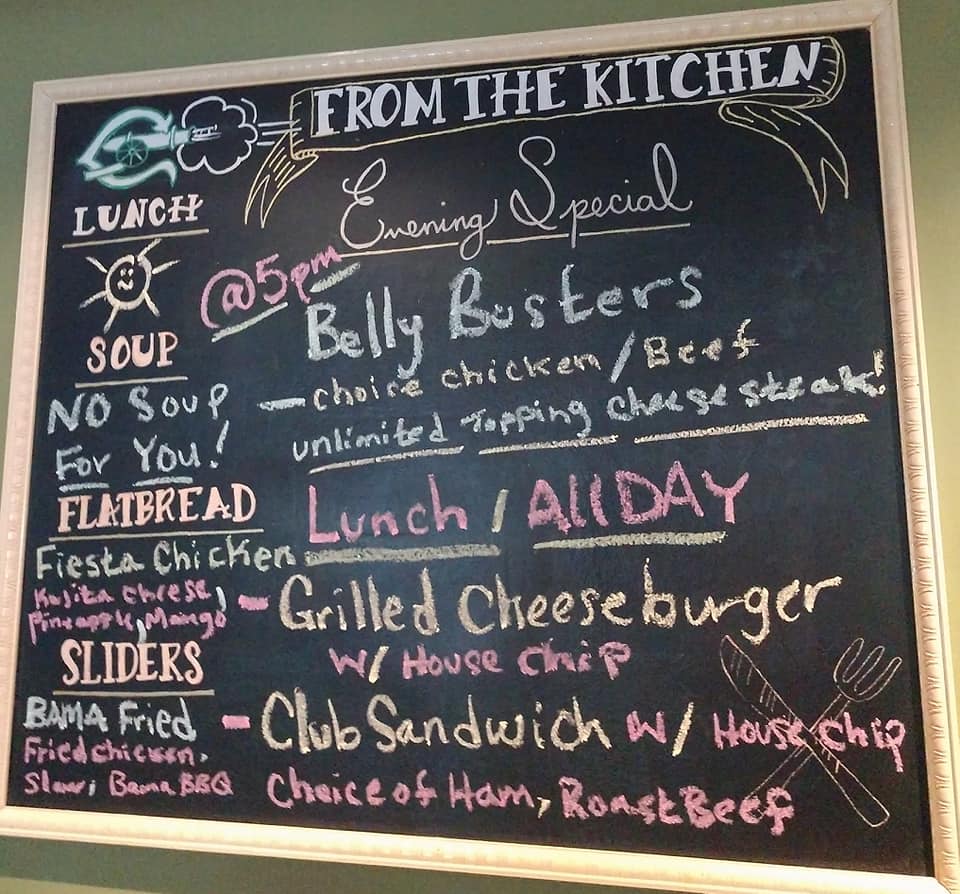 FROM THE KITCHEN
LUNCH
SOUP
NO Soup
For You!
FLATBREAD
Fiesta Chicken
Kusita cheese,
Pineapple, Mango
SLIDERS
BAMA Fried
Fried chicken,
Slaw; Bama BBQ
Evening Special
@5pm
Belly Busters
- choice chicken / Beef
unlimited Topping cheese steak!
Lunch / All DAY
- Grilled Cheeseburger
W/ House chip
- Club Sandwich W/ House chip
Choice of Ham, Roast Beef